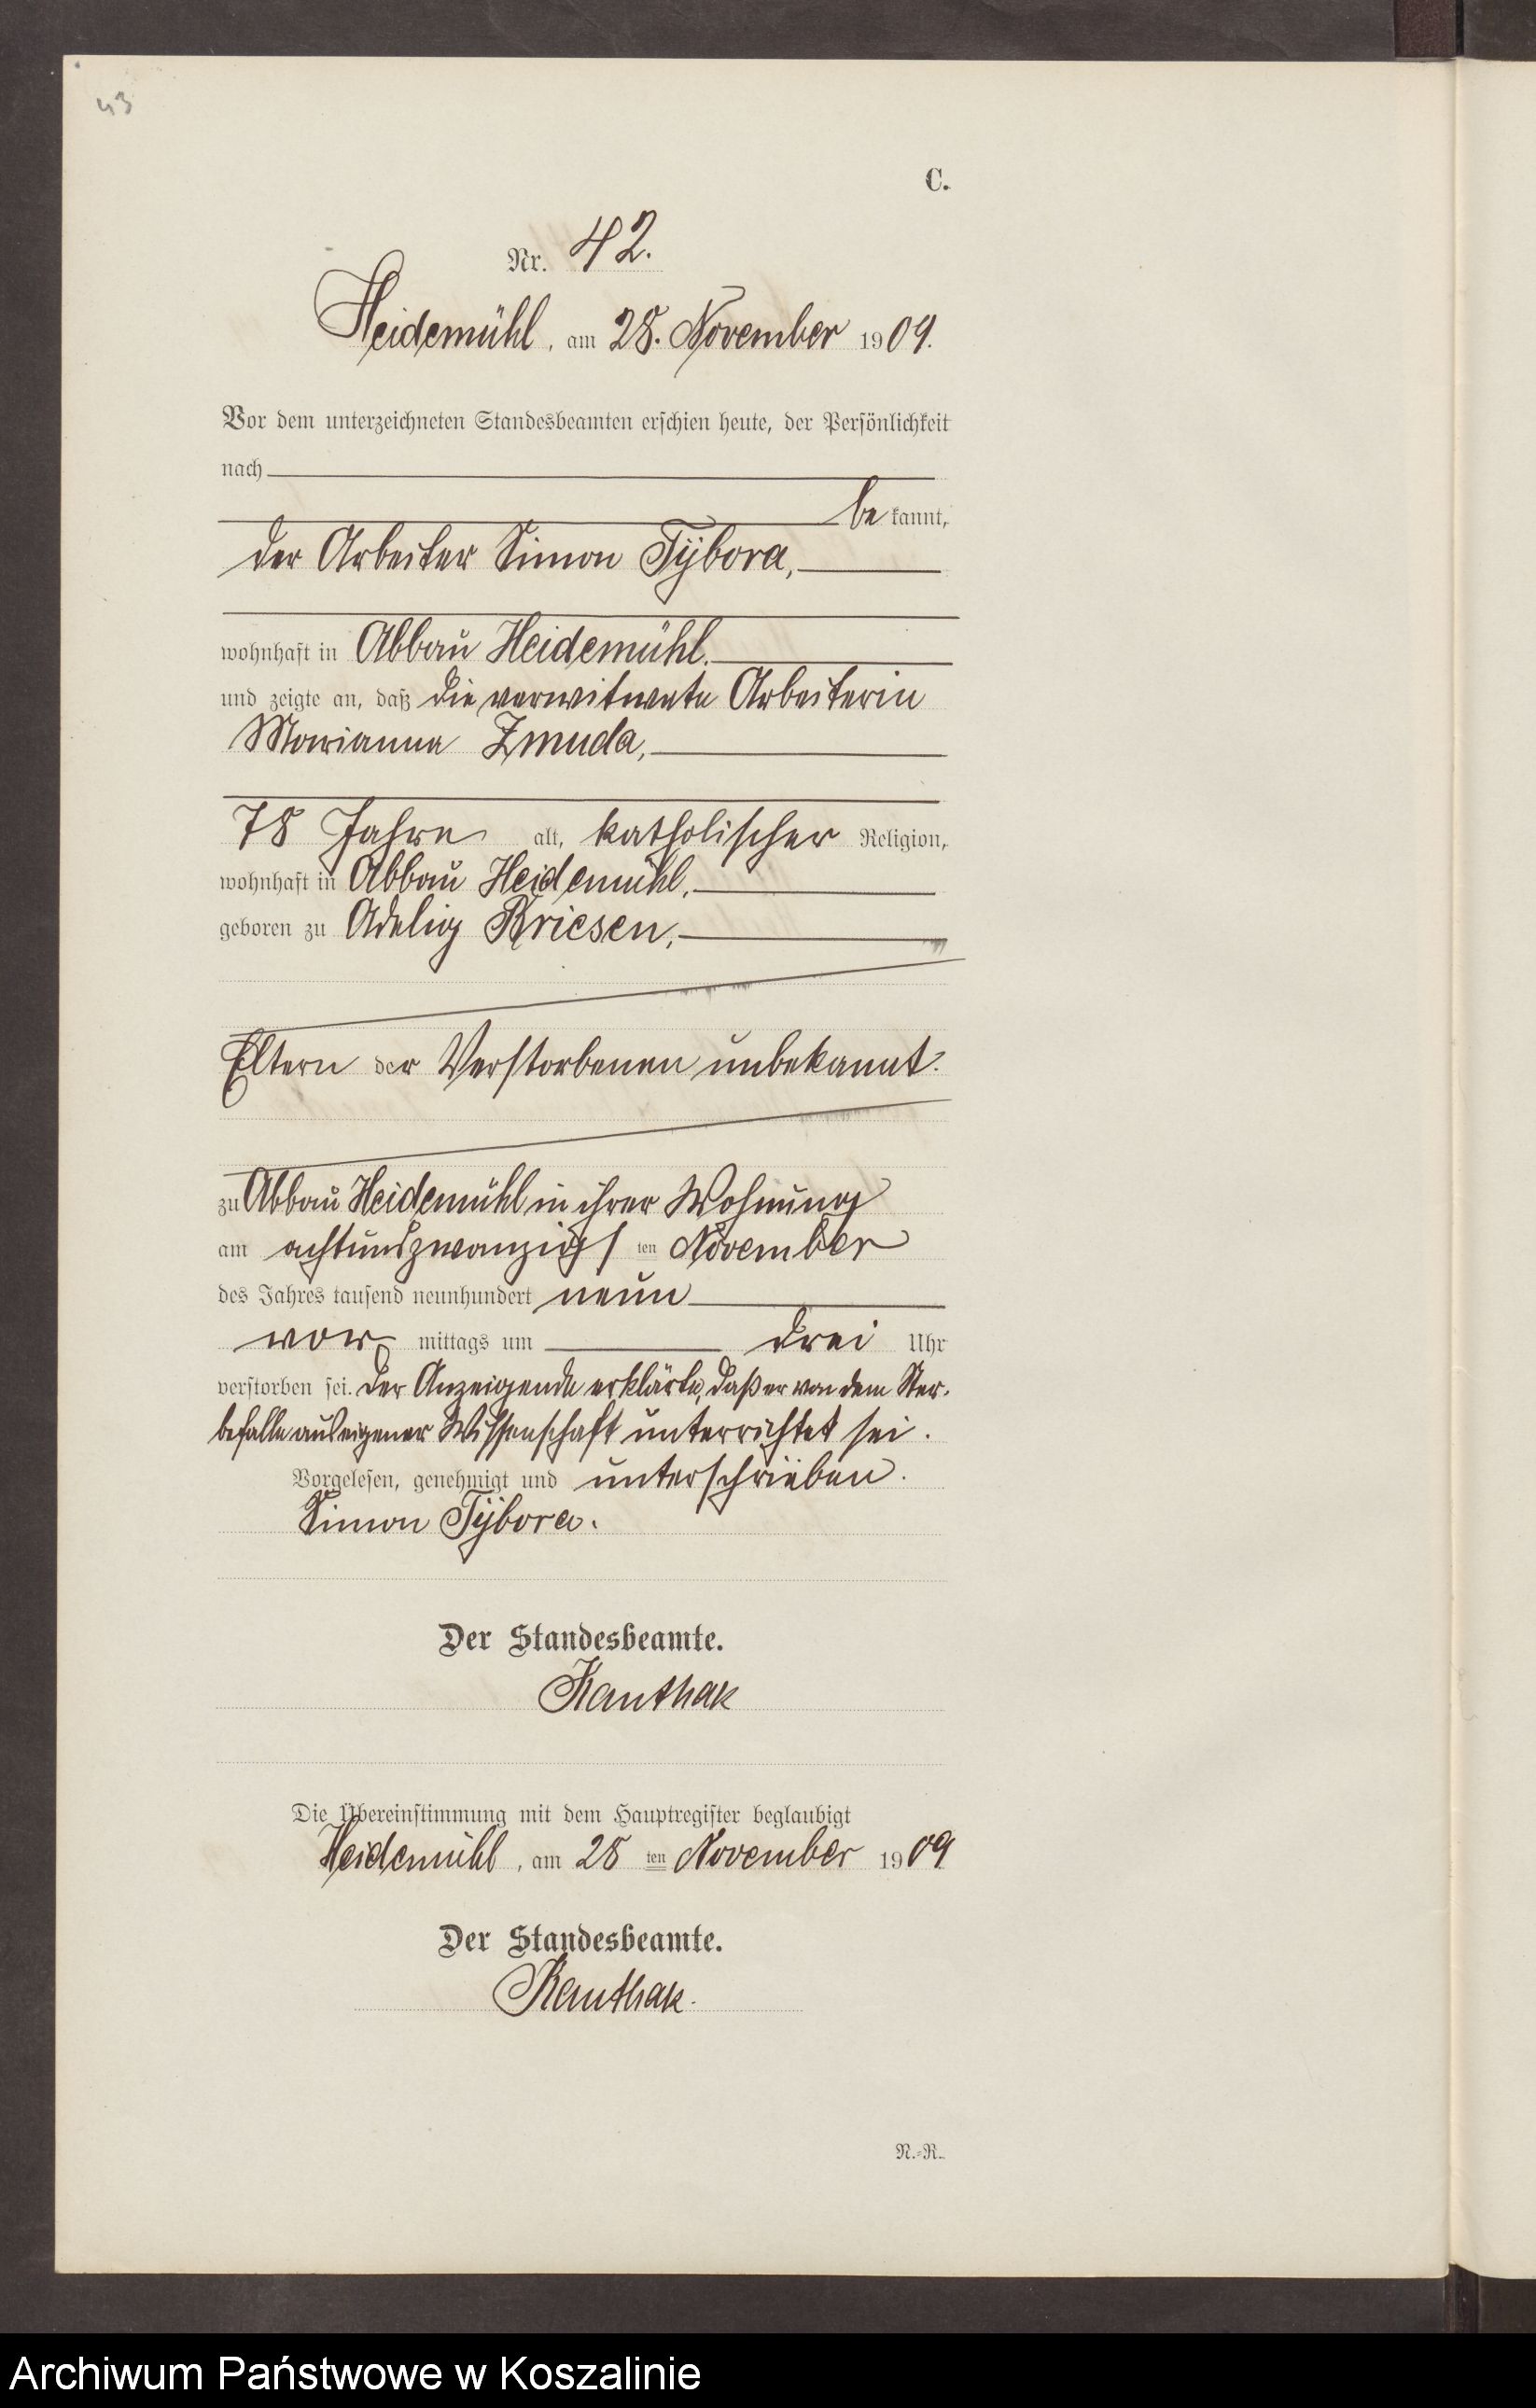 43
C.
Nr. 42.
Heidemühl, am 28. November 1909.
Vor dem unterzeichneten Standesbeamten erschien heute, der Persönlichkeit
nach
be kannt,
der Arbeiter Simon Tÿbora,
wohnhaft in Abbau Heidemühl.
und zeigte an, daß die verwitwete Arbeiterin
Marianna Zmuda,
78 Jahre alt, katholischer Religion,
wohnhaft in Abbau Heidemühl,
geboren zu Adelig Briesen,
Eltern der Verstorbenen unbekannt.
zu Abbau Heidemühl in ihrer Wohnung
am achtundzwanzigs ten November
des Jahres tausend neunhundert neun
vor mittags um drei Uhr
verstorben sei. Der Anzeigende erklärte, daß er von dem Ster-
befalle aus eigener Wissenschaft unterrichtet sei.
Vorgelesen, genehmigt und unterschrieben.
Simon Tÿbora.
Der Standesbeamte.
Kauthak
Die Übereinstimmung mit dem Hauptregister beglaubigt
Heidemühl, am 28 ten November 1909
Der Standesbeamte.
Kauthak.
N.=R.
Archiwum Państwowe w Koszalinie